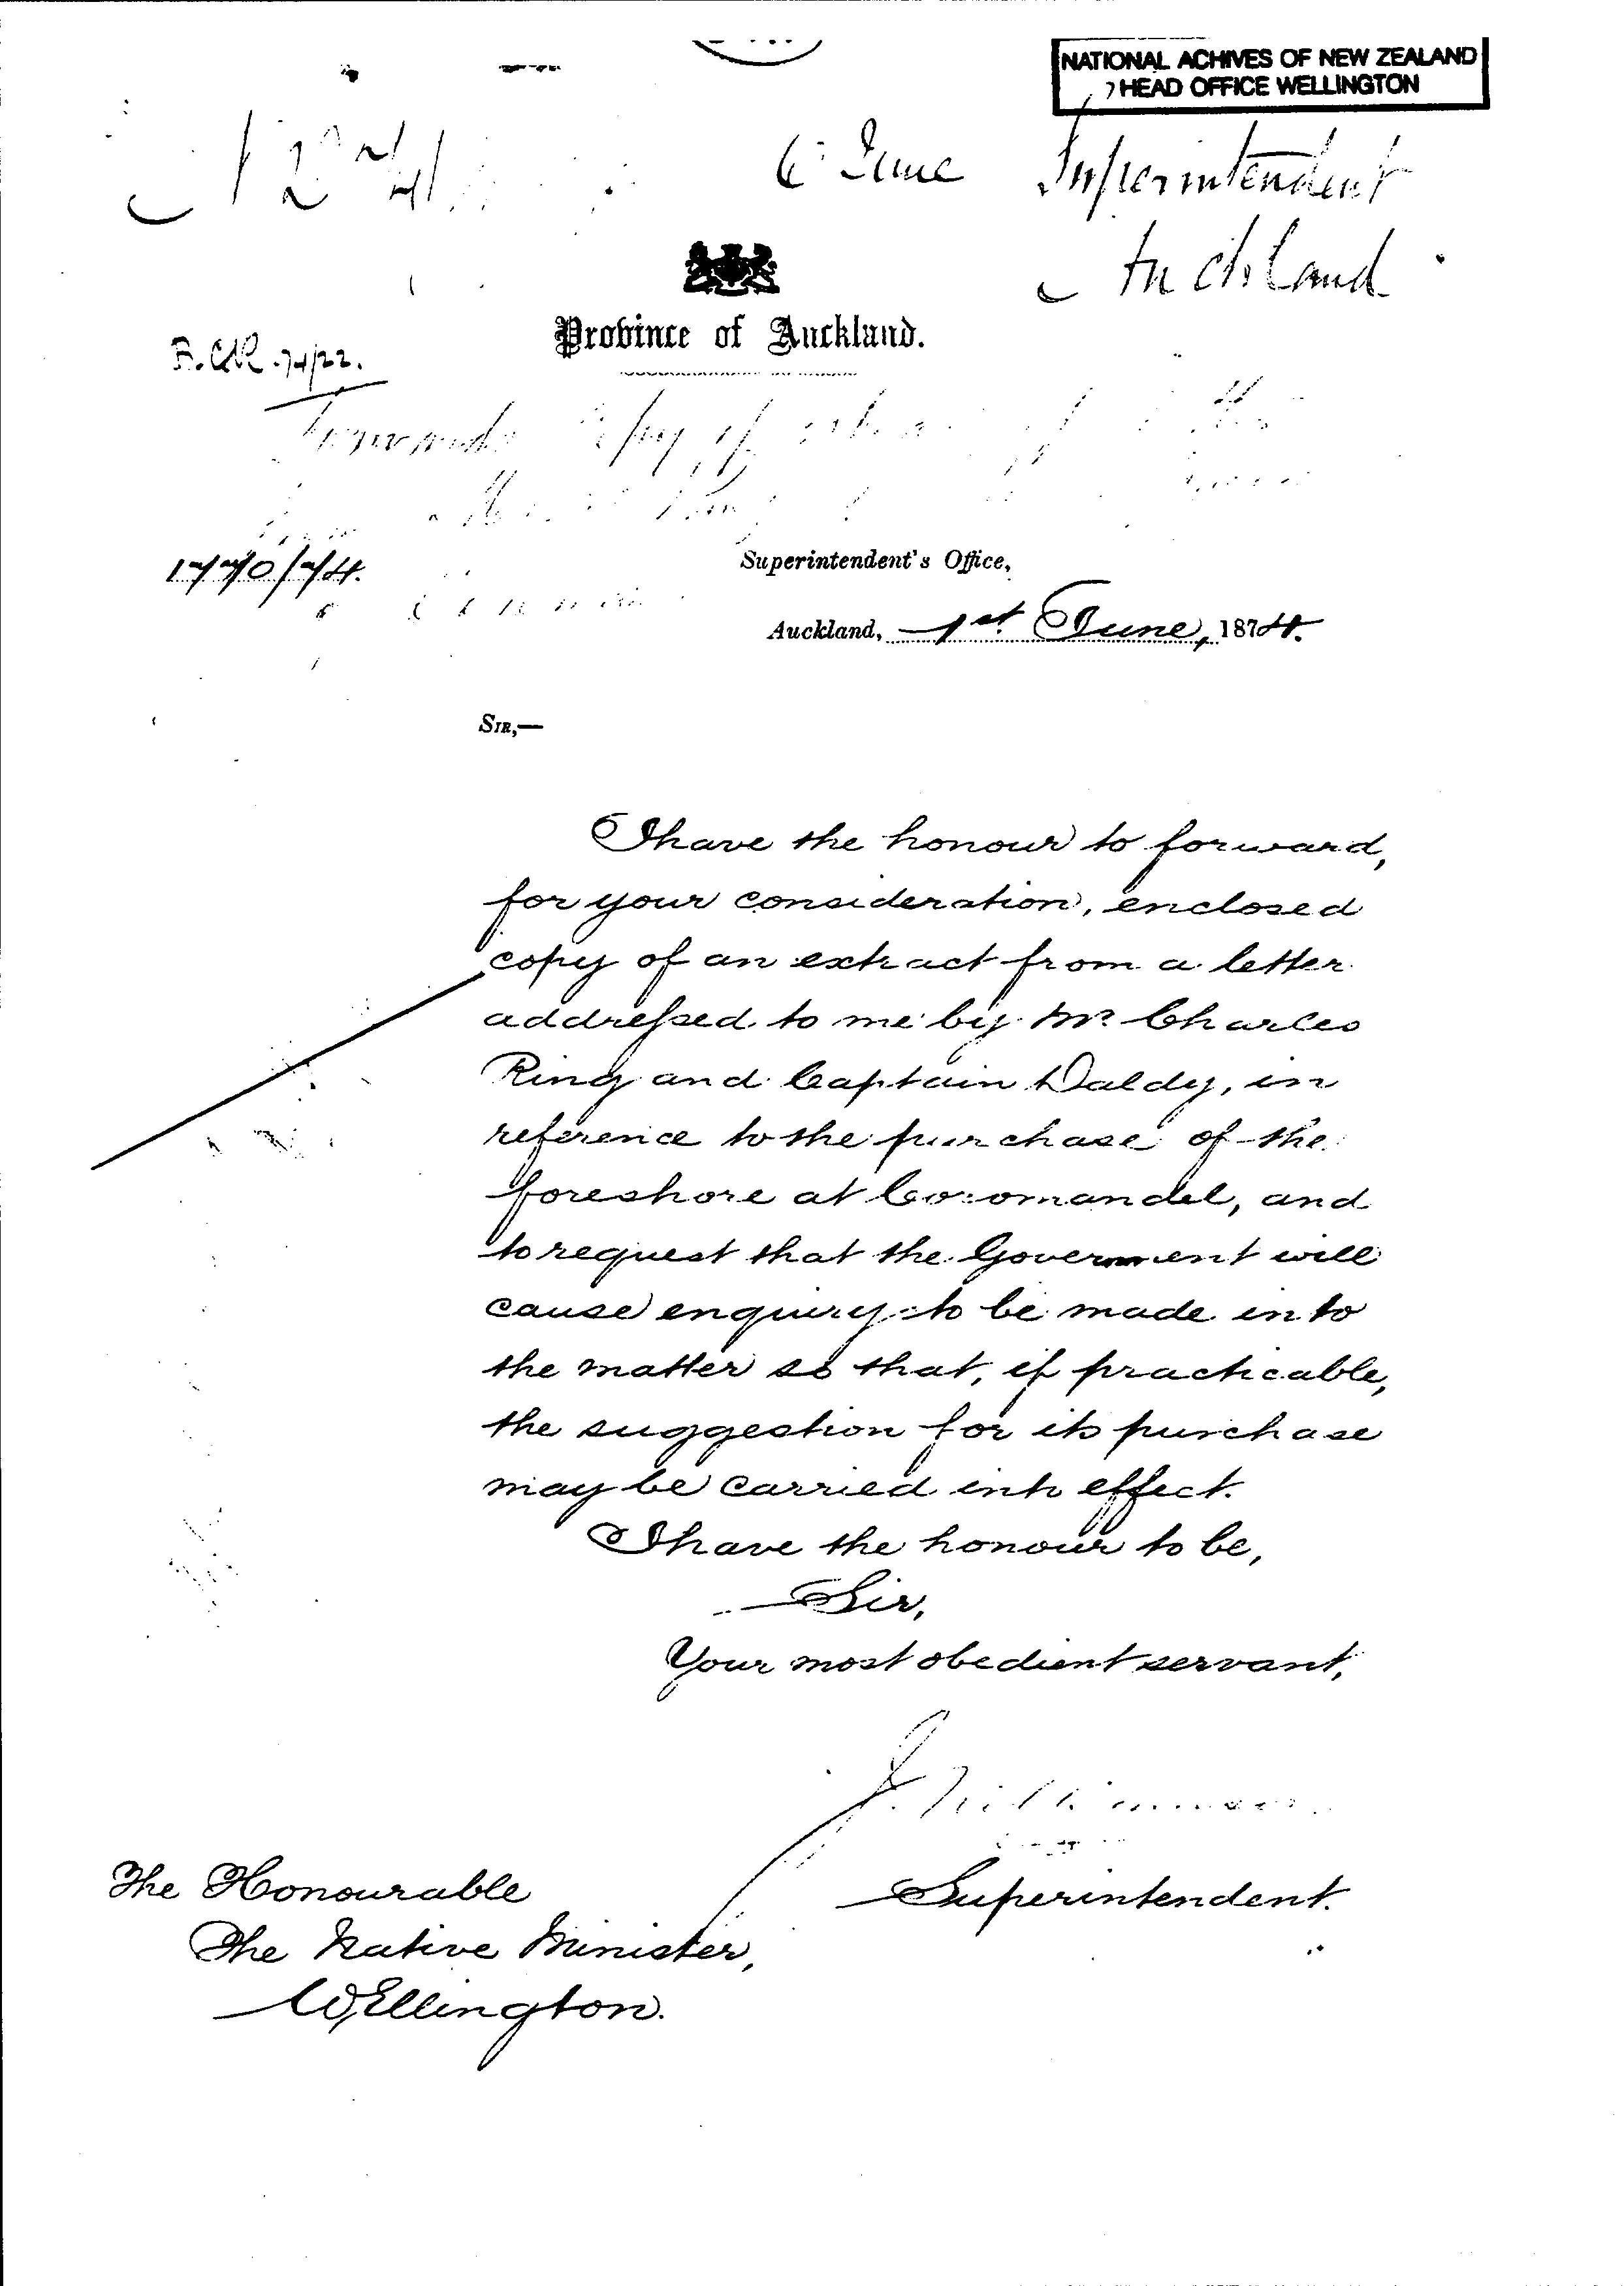 NATIONAL ACHIVES OF NEW ZEALAND
HEAD OFFICE WELLINGTON
6 June Superintendent
Auckland
Province of Auckland.
74/22.
Forwards Copy of
1770/74.
Superintendent's Office,
Auckland, 1st June, 1874.
SIR,—
I have the honour to forward,
for your consideration, enclosed
copy of an extract from a letter
addressed to me by Mr Charles
Ring and Captain Daldy, in
reference to the purchase of the
foreshore at Coromandel, and
to request that the Government will
cause enquiry to be made into
the matter so that, if practicable,
the suggestion for its purchase
may be carried into effect.
I have the honour to be,
Sir,
Your most obedient servant,
Superintendent.
The Honourable
The Native Minister,
Wellington.